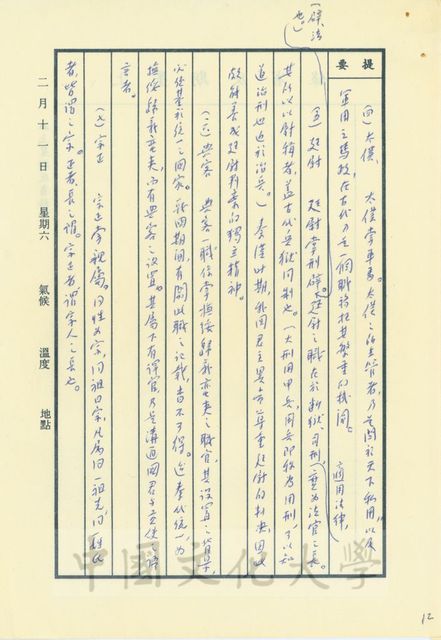 提要
(四) 太僕 太僕掌車馬。太僕之所主管者,乃是關於天下私用,以及
軍用之馬政,在古代乃是一個職務極其繁重的機關。
適用法律,
(五) 廷尉 廷尉掌刑辟。廷尉之職在於斷獄、司刑,實為法官之長。
(辟法也)
其所以以尉稱者,蓋古代兵獄同制也。(大刑用甲兵,用兵即較為用刑,可以知
道治刑也近於治兵。)秦漢時期,我國君主異常尊重廷尉的判決,因此
頗能養成廷尉判案的獨立精神。
(六) 典客 典客一職係掌撫綏歸義蠻夷之職官,其設置之背景,
必係基於統一之國家。戰國期間,有關此職之記載,杳不可得。迨秦代統一,為
撫綏歸義蠻夷,而有典客之設置。其屬下有譯官,乃是溝通國君與
言者。
(七) 宗正 宗正掌親屬。同姓為宗,同祖曰宗,凡屬同一祖先同一姓氏
者,皆謂之宗。正者,長之謂。宗正者,謂宗人之長也。
二月十一日 星期六 氣候 溫度 地點
中國文化大學
12